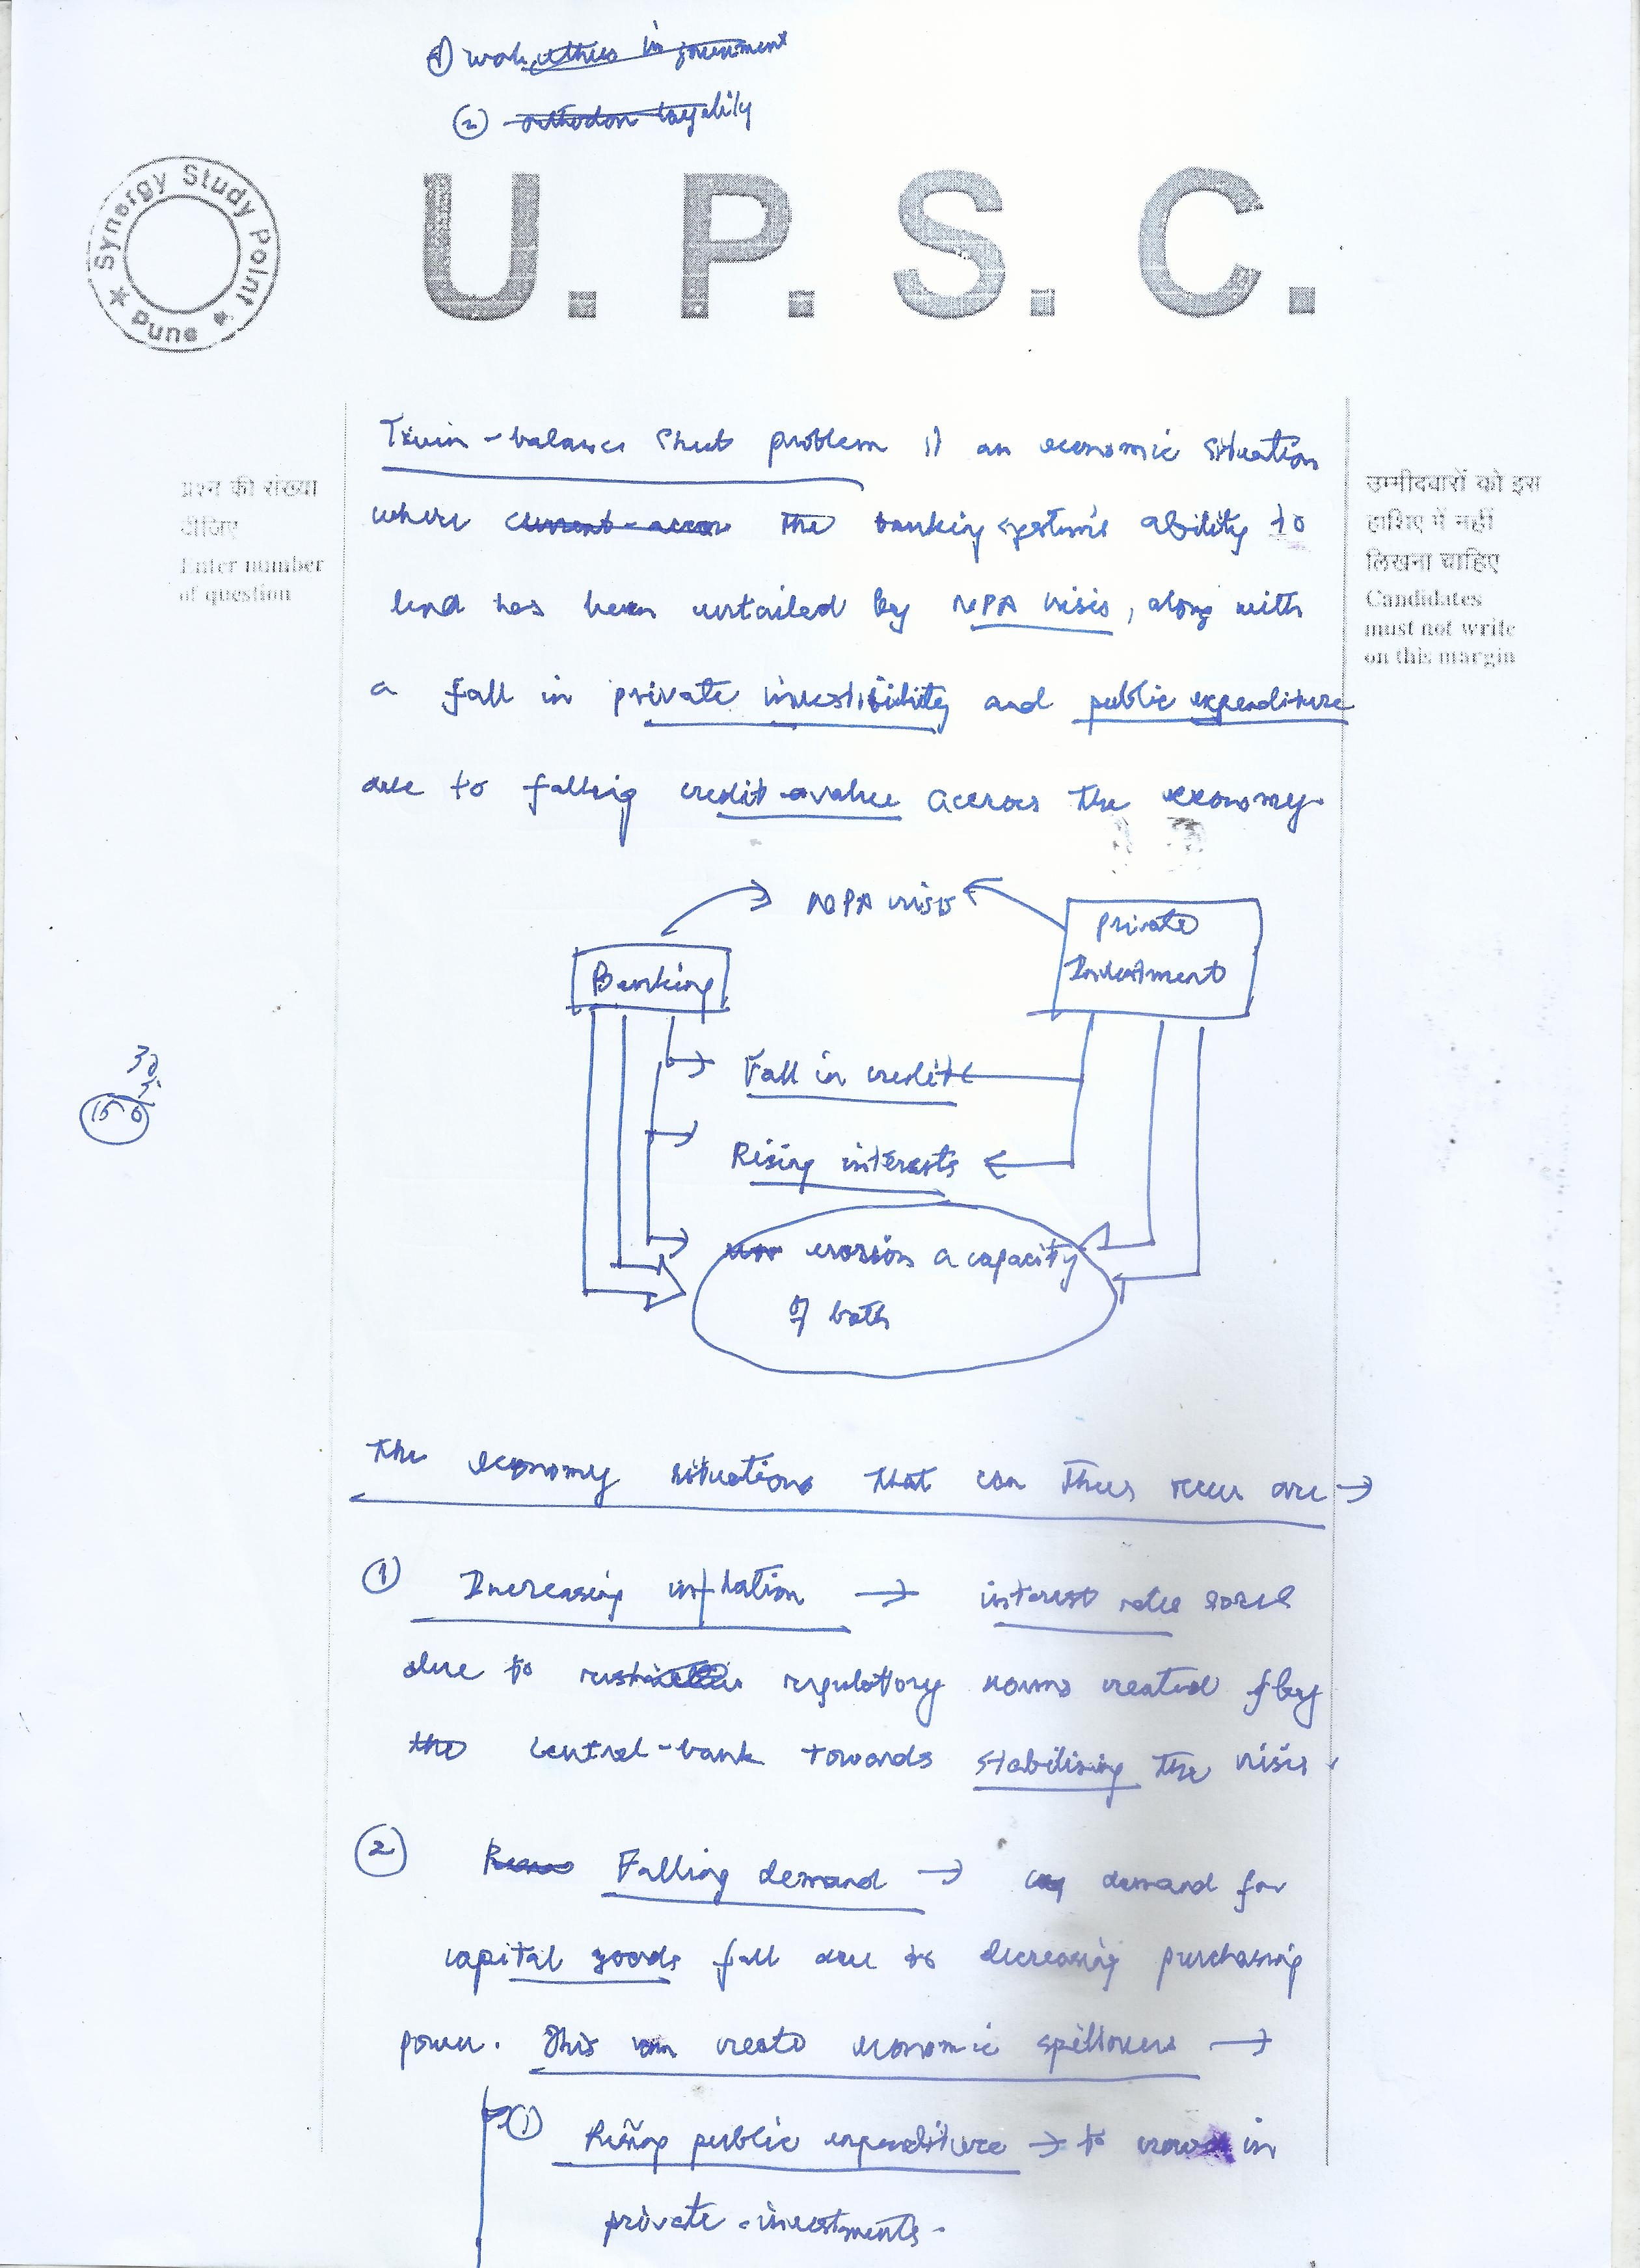 ① work ethics in government
② orthodox legality
Synergy Study Point
★ Pune ★
U. P. S. C.
प्रश्न की संख्या
दीजिए
Enter number
of question
उम्मीदवारों को इस
हाशिए में नहीं
लिखना चाहिए
Candidates
must not write
on this margin
Twin-balance sheet problem is an economic situation
where the banking system's ability to
lend has been curtailed by NPA crisis, along with
a fall in private investibility and public expenditure
due to falling credit value accross the economy.
NPA crisis
Banking
Private
Investment
Fall in credit
Rising interests
erosion a capacity
of both
The economy situations that can thus occur are →
① Increasing inflation → interest rates
due to regulatory norms created by
the central-bank towards stabilising the crisis.
② Falling demand → demand for
capital goods fall due to decreasing purchasing
power. This can create economic spillovers →
① Rising public expenditure → to crowd in
private-investments.